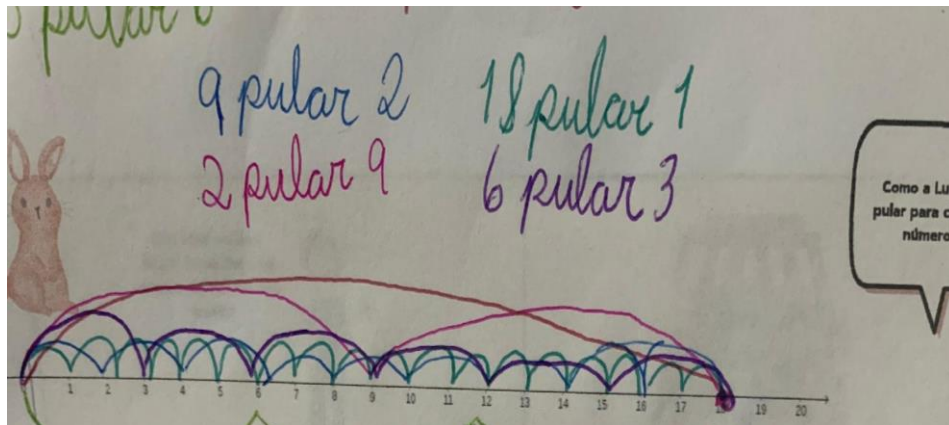 pular
9 pular 2
18 pular 1
2 pular 9
6 pular 3
Como a Lu
pular para c
número
1 2 3 4 5 6 7 8 9 10 11 12 13 14 15 16 17 18 19 20